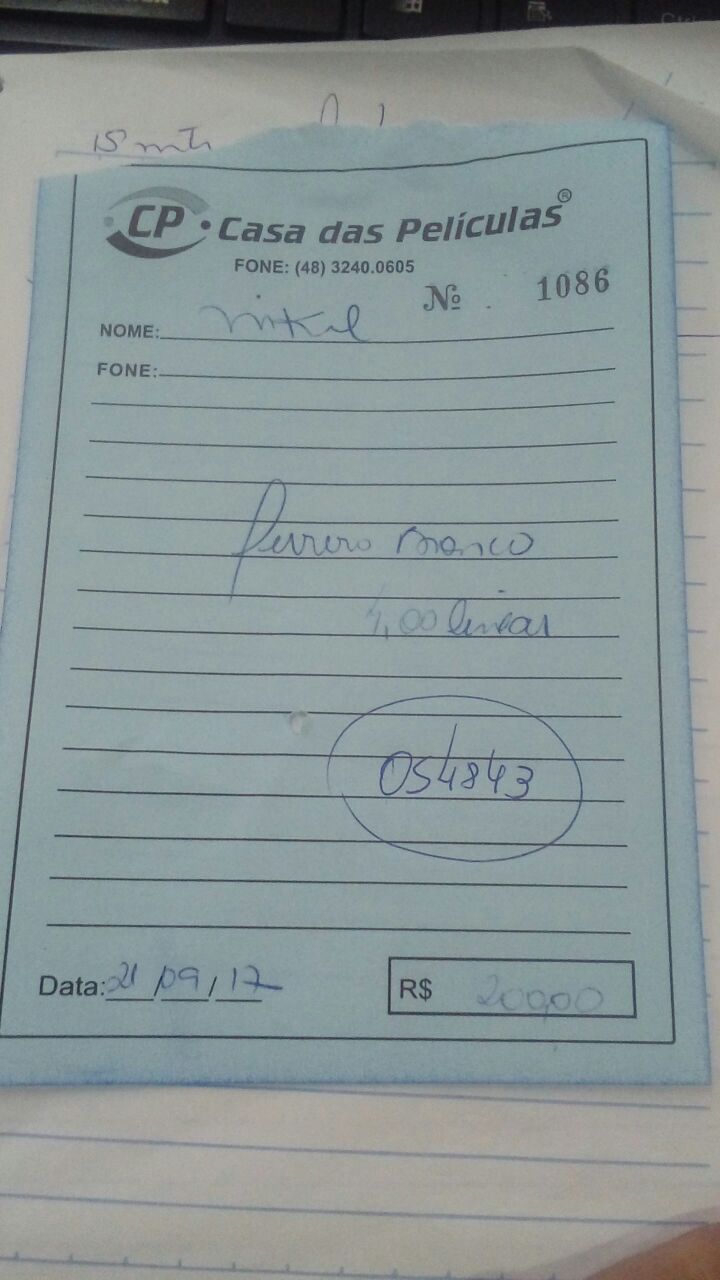 15 mts
CP • Casa das Películas®
FONE: (48) 3240.0605
Nº 1086
NOME:
FONE:
Branco
4,00 linear
054843
Data: 21/09/17
R$ 200,00